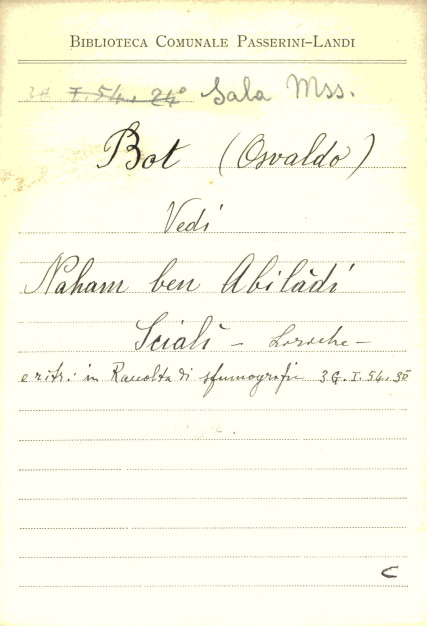 BIBLIOTECA COMUNALE PASSERINI-LANDI
I.54. 24° Sala Mss.
Bot (Osvaldo)
Vedi
Naham ben Abilàdi
Scialì -
in Raccolta di sfumografie 3G.I.54.
C